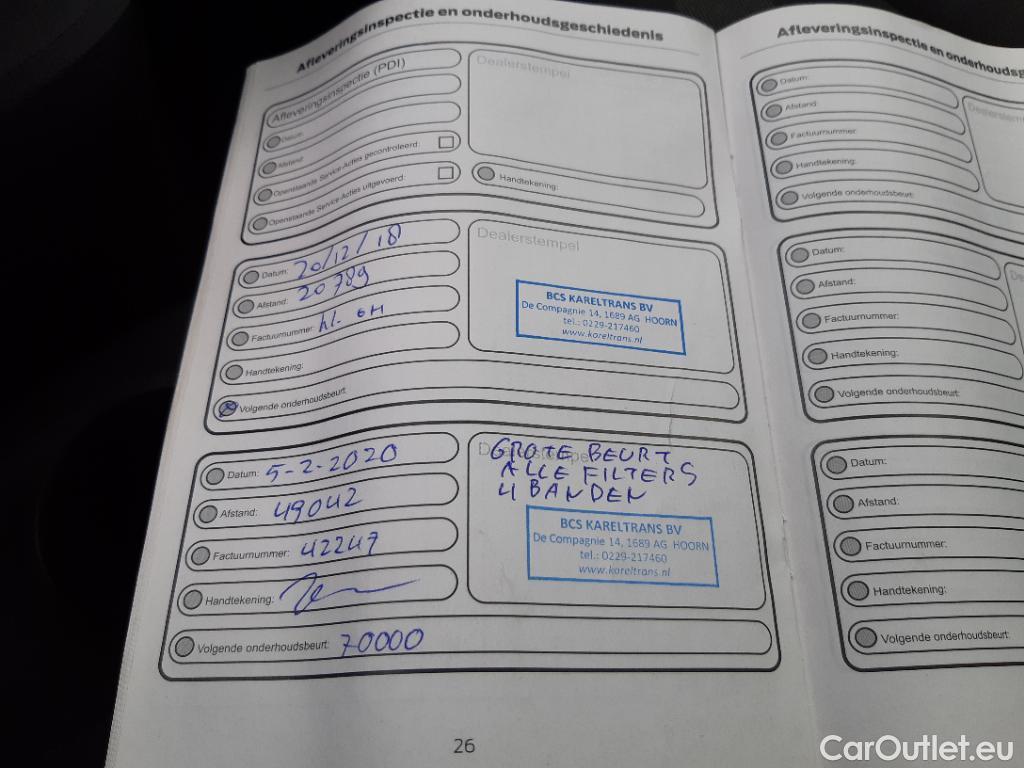 Afleveringsinspectie en onderhoudsgeschiedenis
Afleveringsinspectie (PDI)
Datum:
Afstand:
Openstaande Service Acties gecontroleerd:
Openstaande Service Acties uitgevoerd:
Dealerstempel
Handtekening:
Datum: 20/12/18
Afstand: 20789
Factuurnummer:
Handtekening:
Volgende onderhoudsbeurt:
Dealerstempel
BCS KARELTRANS BV
De Compagnie 14, 1689 AG HOORN
tel.: 0229-217460
www.kareltrans.nl
Datum: 5-2-2020
Afstand: 49042
Factuurnummer: 42247
Handtekening:
Volgende onderhoudsbeurt: 70000
Dealerstempel
GROTE BEURT
ALLE FILTERS
4 BANDEN
BCS KARELTRANS BV
De Compagnie 14, 1689 AG HOORN
tel.: 0229-217460
www.kareltrans.nl
26
Afleveringsinspectie en onderhoudsg
Datum:
Afstand:
Factuurnummer:
Handtekening:
Volgende onderhoudsbeurt:
Dealerstem
Datum:
Afstand:
Factuurnummer:
Handtekening:
Volgende onderhoudsbeurt:
De
Datum:
Afstand:
Factuurnummer:
Handtekening:
Volgende onderhoudsbeurt:
CarOutlet.eu